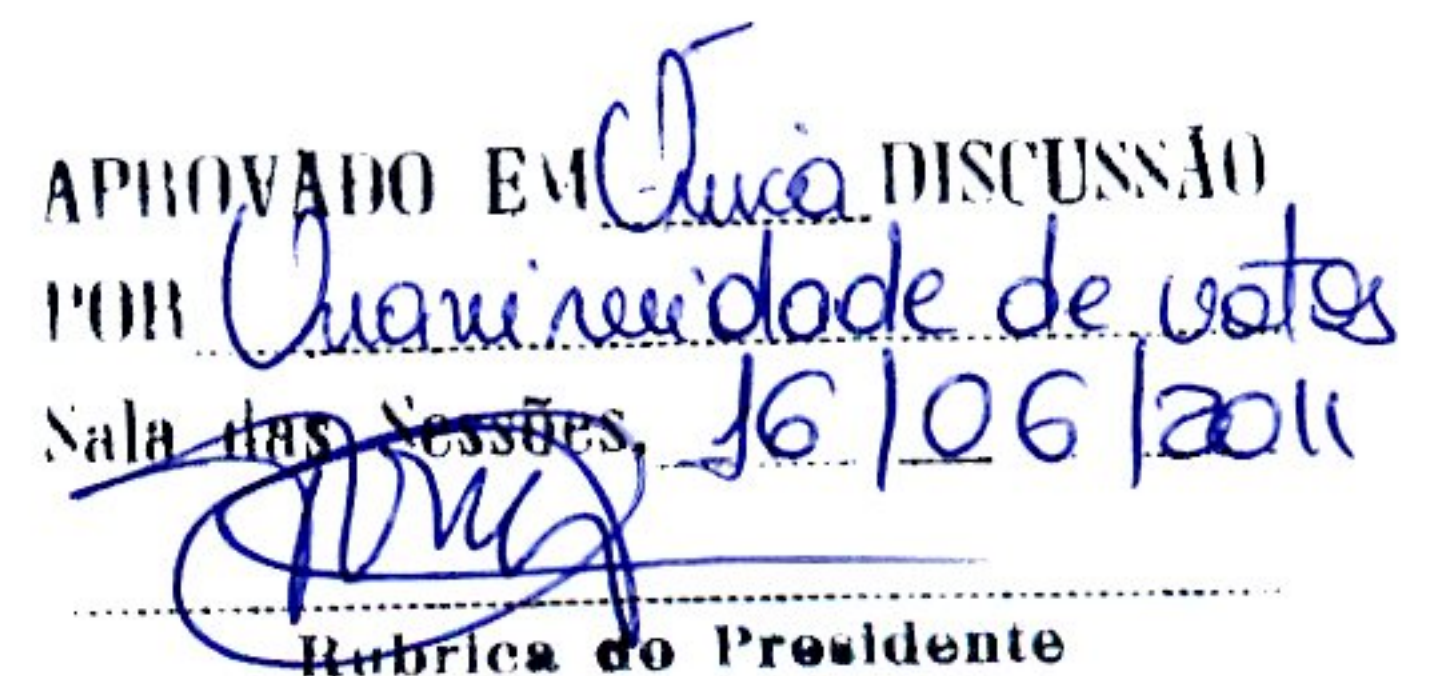 APROVADO EM Única DISCUSSÃO
POR Unanimidade de votos
Sala das Sessões, 16/06/2011
Rubrica do Presidente